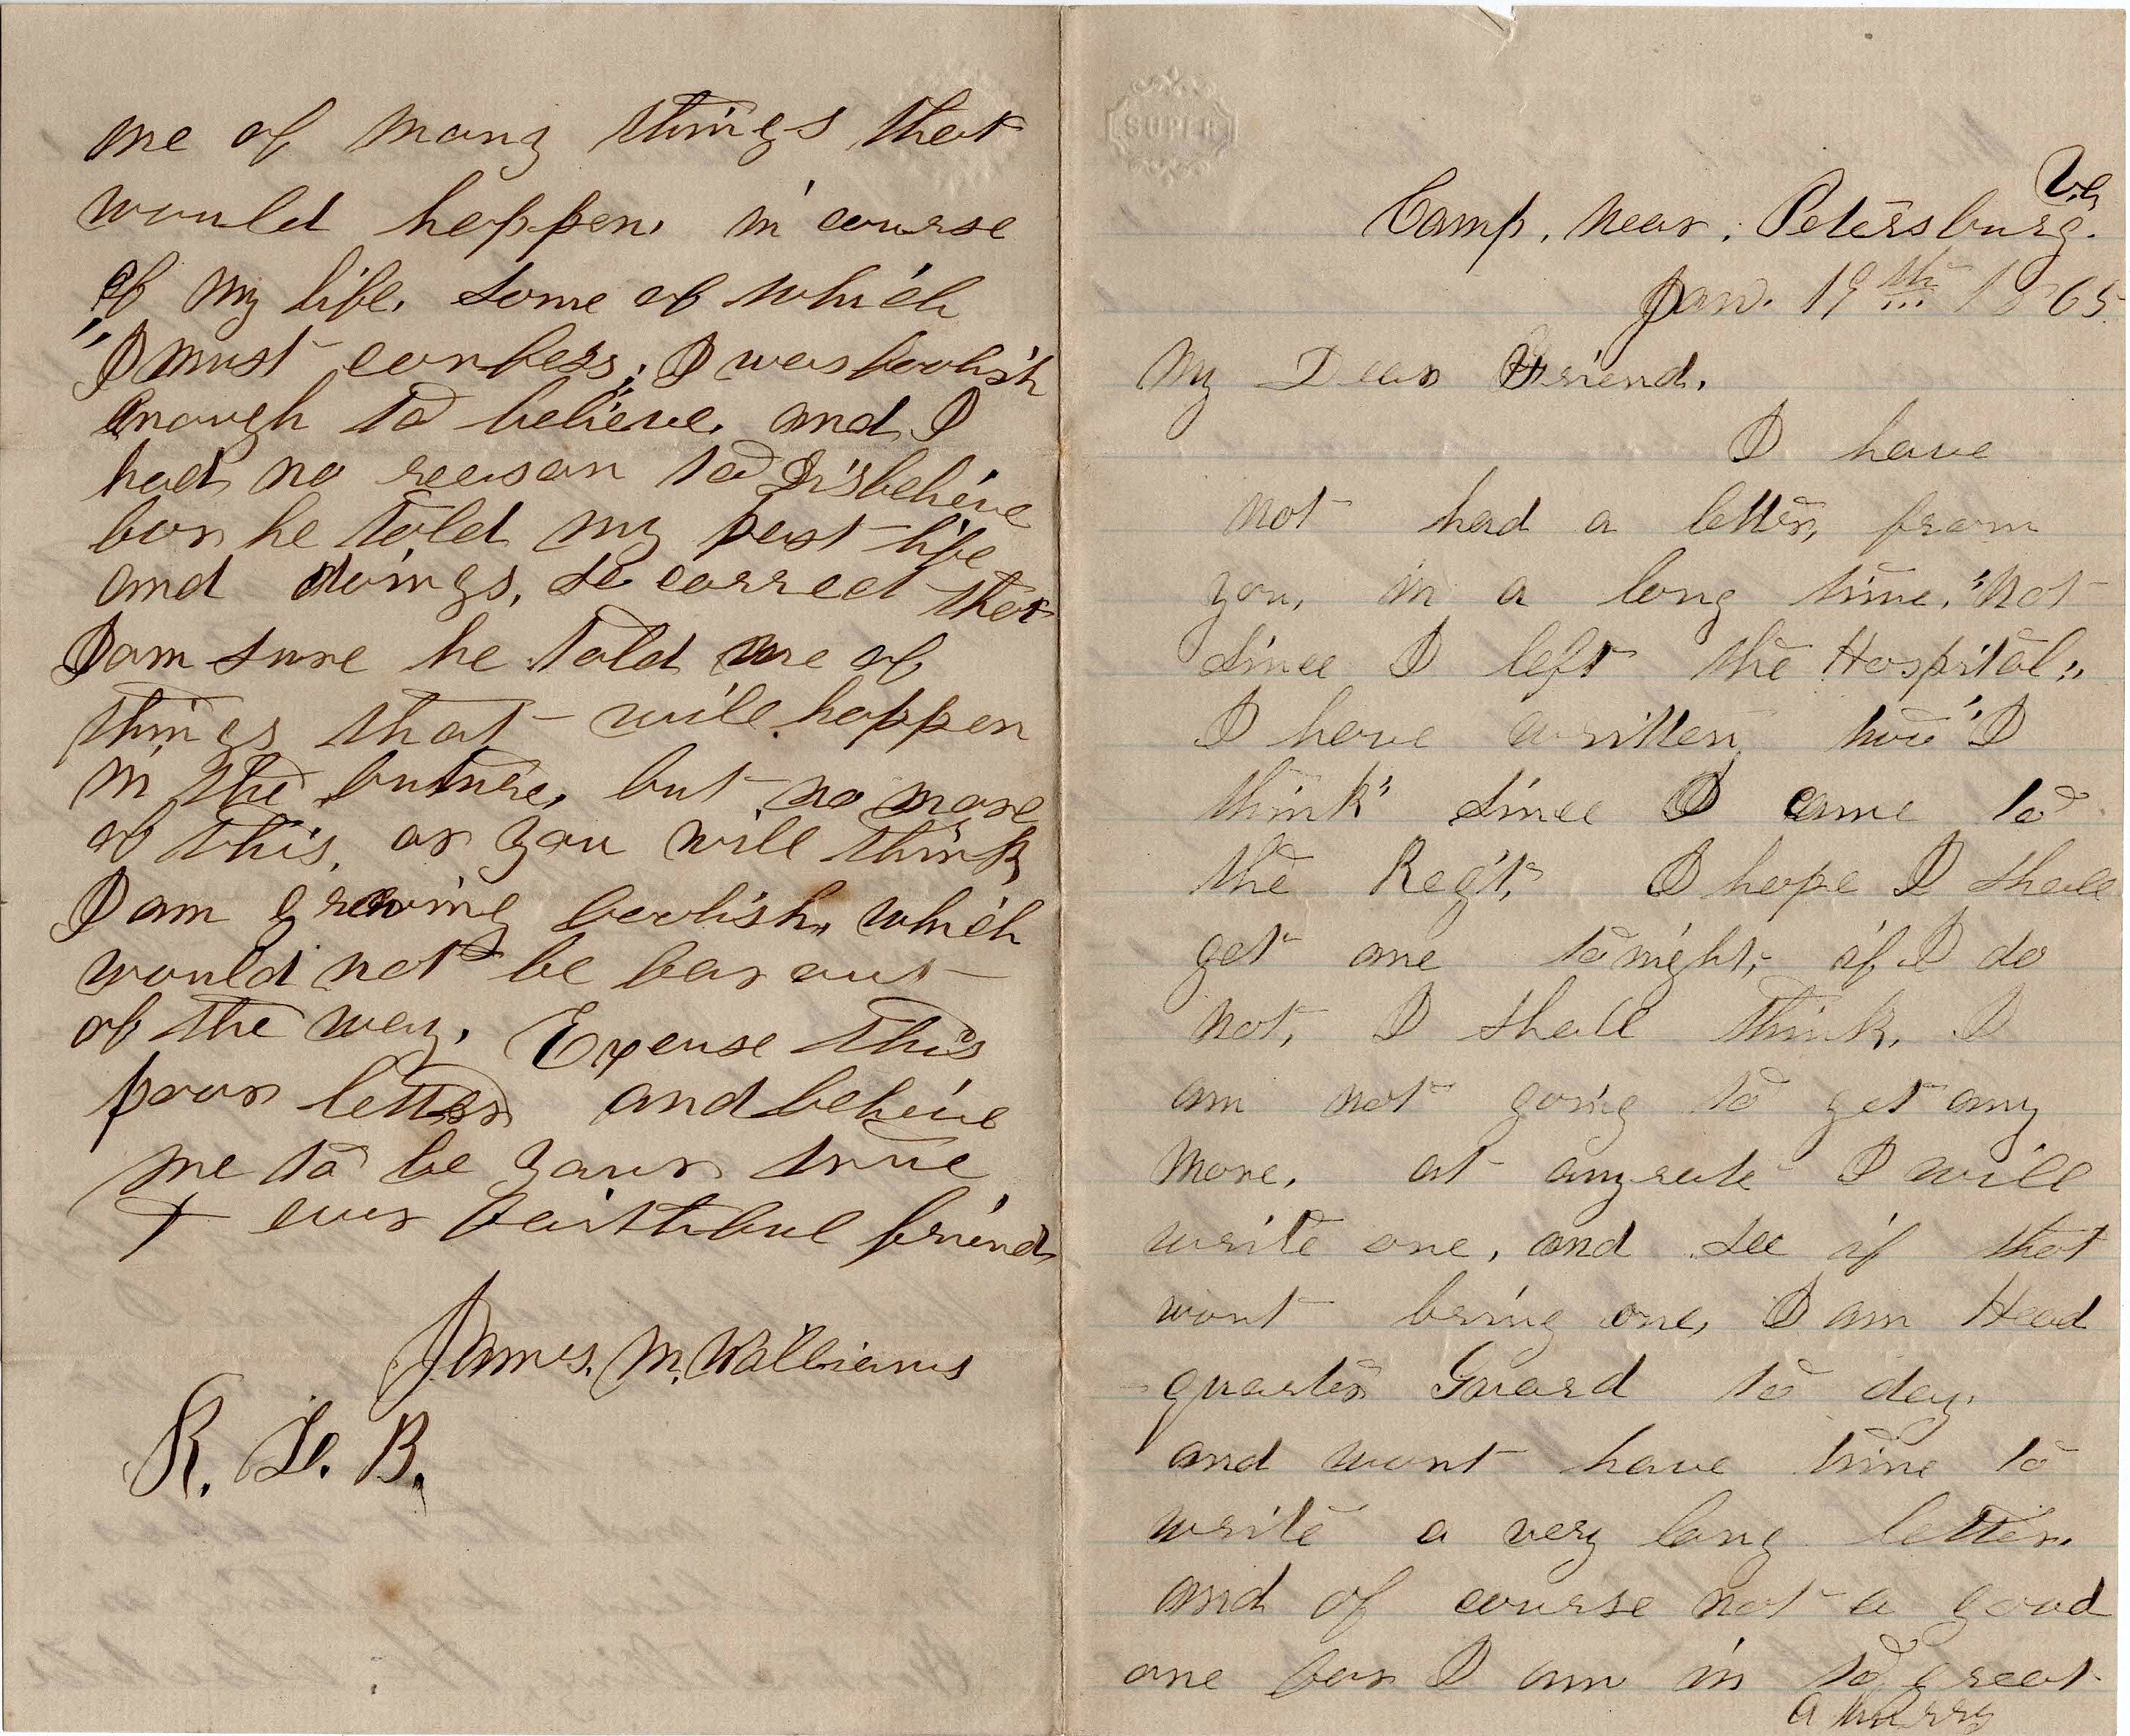 me of many things that
would happen, in course
of my life. Some of which
"I must confess;" I was foolish
enough to believe, and I
had no reason to disbelieve
for he told my past life
and doings, so correct that
I am sure he told me of
things that will happen
in the future, but no more
of this, or you will think
I am growing foolish, which
would not be far out
of the way. Excuse this
poor letter and believe
me to be your true
+ ever faithful friend
James. M. Williams
K. L. B.
SUPER
Camp, near, Petersburg. Va
Jan. 19th 1865.
My Dear Friend.
I have
not had a letter, from
you, in a long time, "not
since I left the Hospital;"
I have written, two "I
think" since I came to
the Reg't, I hope I shall
get one to night, if I do
not, I shall think, I
am not going to get any
more. at anyrate I will
write one, and see if that
wont bring one, I am Head
quarters Guard to day.
and wont have time to
write a very long letter.
and of course not a good
one for I am in to great
a hurry